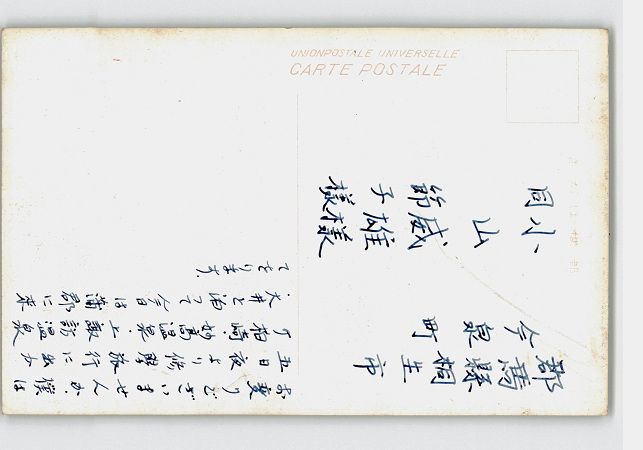 UNIONPOSTALE UNIVERSELLE
CARTE POSTALE
群馬縣桐生市
今泉町
小山威雄様
同 節子様
お変りございませんか、僕は
五日夜より修學旅行に出か
柏崎、妙高温泉、上諏訪温泉
、大井と廻つて今日は蒲郡に来
てをります。